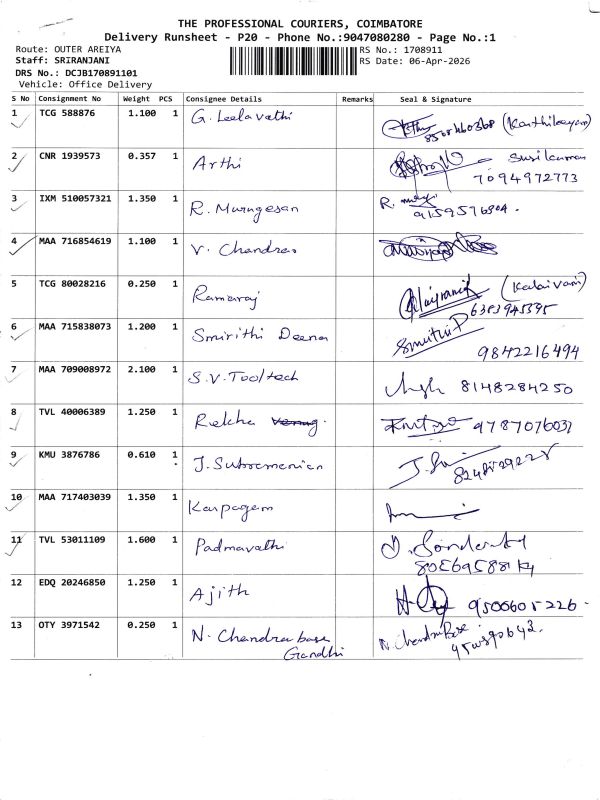 THE PROFESSIONAL COURIERS, COIMBATORE
Delivery Runsheet - P20 - Phone No.:9047080280 - Page No.:1
Route: OUTER AREIYA
RS No.: 1708911
Staff: SRIRANJANI
RS Date: 06-Apr-2026
DRS No.: DCJB170891101
Vehicle: Office Delivery
S No Consignment No Weight PCS Consignee Details Remarks Seal & Signature
1 TCG 588876 1.100 1 G. Leelavathi (Karthikeyan)
2 CNR 1939573 0.357 1 Arthi Susilkumar
7094972773
3 IXM 510057321 1.350 1 R. Murugesan R.
9159576904.
4 MAA 716854619 1.100 1 V. Chandras
5 TCG 80028216 0.250 1 Ramaraj (Kalaivani)
6383945395
6 MAA 715838073 1.200 1 Smirithi Deena Smrithi P
9842216494
7 MAA 709008972 2.100 1 S.V. Tooltech 8148284250
8 TVL 40006389 1.250 1 Rekha 9787076031
9 KMU 3876786 0.610 1 J. Subramanian
10 MAA 717403039 1.350 1 Karpagam
11 TVL 53011109 1.600 1 Padmavathi
12 EDQ 20246850 1.250 1 Ajith 9500605226
13 OTY 3971542 0.250 1 N. Chandra bose N. Chandra Bose.
Gandhi